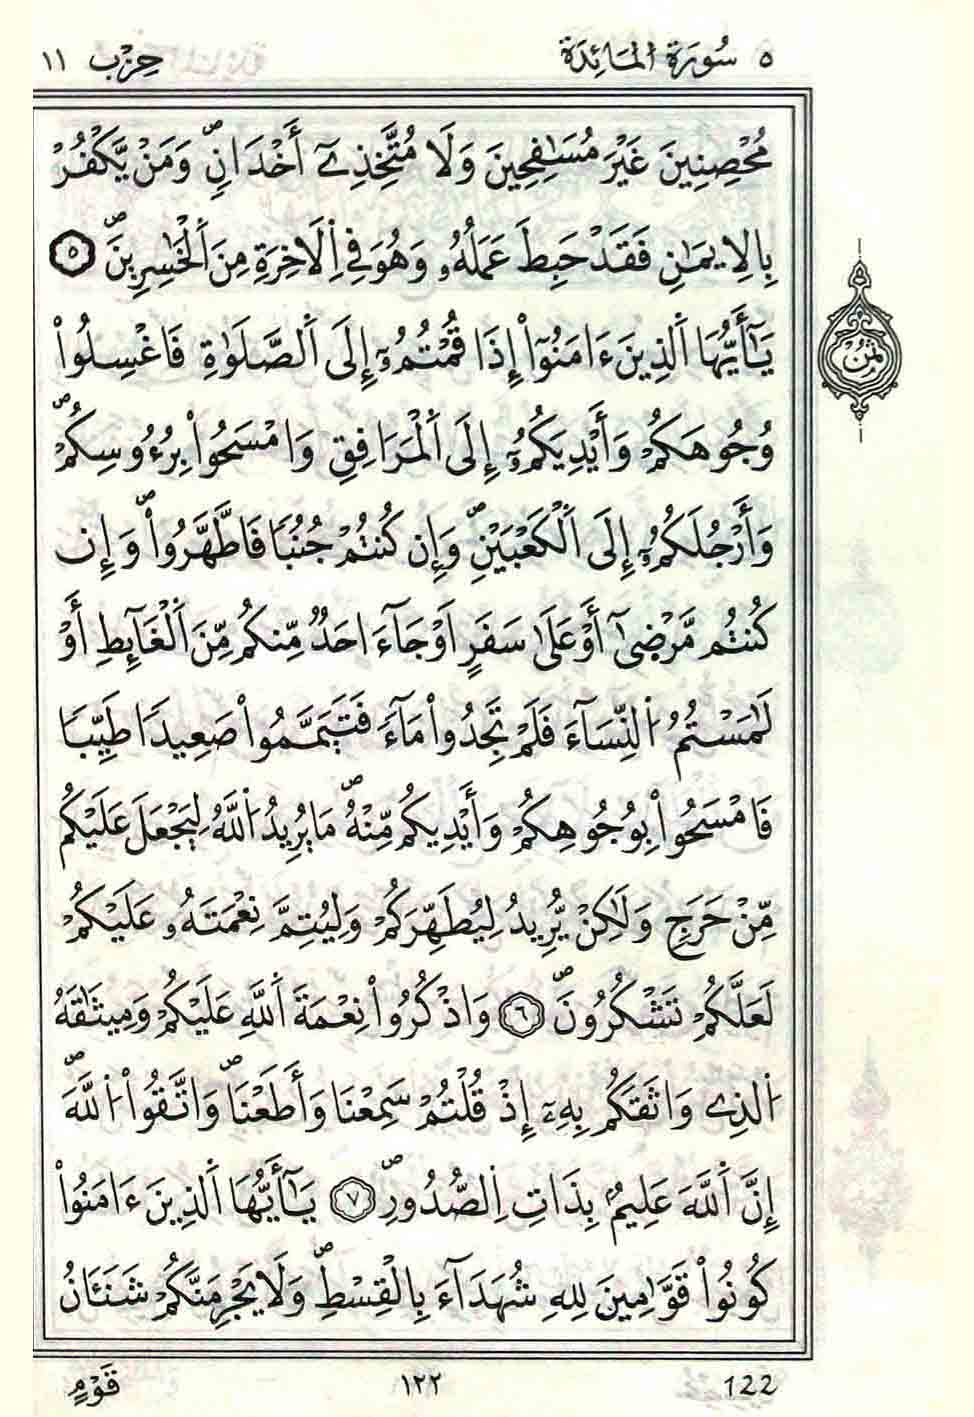 ٥ سُورَةُ المَائِدَة
حِزْب ١١
مُحْصِنِينَ غَيْرَ مُسَٰفِحِينَ وَلَا مُتَّخِذِےٓ أَخْدَانٖۖ وَمَنْ يَّكْفُرْ
بِالِايمَٰنِ فَقَدْ حَبِطَ عَمَلُهُۥ وَهُوَ فِے اِ۬لَاخِرَةِ مِنَ اَ۬لْخَٰسِرِينَۖ ٥
يَٰٓأَيُّهَا اَ۬لذِينَ ءَامَنُوٓاْ إِذَا قُمْتُمُۥٓ إِلَى اَ۬لصَّلَوٰةِ فَاغْسِلُواْ
ثمن
وُجُوهَكُمْ وَأَيْدِيَكُمُۥٓ إِلَى اَ۬لْمَرَافِقِ وَامْسَحُواْ بِرُءُوسِكُمْۖ
وَأَرْجُلَكُمُۥٓ إِلَى اَ۬لْكَعْبَيْنِۖ وَإِن كُنتُمْ جُنُباٗ فَاطَّهَّرُواْۖ وَإِن
كُنتُم مَّرْضۭىٰٓ أَوْ عَلَىٰ سَفَرٍ اَوْ جَآءَ احَدٞ مِّنكُم مِّنَ اَ۬لْغَآئِطِ أَوْ
لَٰمَسْتُمُ اُ۬لنِّسَآءَ فَلَمْ تَجِدُواْ مَآءٗ فَتَيَمَّمُواْ صَعِيداٗ طَيِّباٗ
فَامْسَحُواْ بِوُجُوهِكُمْ وَأَيْدِيكُم مِّنْهُۖ مَا يُرِيدُ اُ۬للَّهُ لِيَجْعَلَ عَلَيْكُم
مِّنْ حَرَجٖ وَلَٰكِنْ يُّرِيدُ لِيُطَهِّرَكُمْ وَلِيُتِمَّ نِعْمَتَهُۥ عَلَيْكُمْ
لَعَلَّكُمْ تَشْكُرُونَۖ ٦ وَاذْكُرُواْ نِعْمَةَ اَ۬للَّهِ عَلَيْكُمْ وَمِيثَٰقَهُ
اُ۬لذِے وَاثَقَكُم بِهِۦٓ إِذْ قُلْتُمْ سَمِعْنَا وَأَطَعْنَاۖ وَاتَّقُواْ اُ۬للَّهَۖ
إِنَّ اَ۬للَّهَ عَلِيمُۢ بِذَاتِ اِ۬لصُّدُورِۖ ٧ يَٰٓأَيُّهَا اَ۬لذِينَ ءَامَنُواْ
كُونُواْ قَوَّٰمِينَ لِلهِ شُهَدَآءَ بِالْقِسْطِۖ وَلَا يَجْرِمَنَّكُمْ شَنَـَٔانُ
قَوْمٍ
١٢٢
122